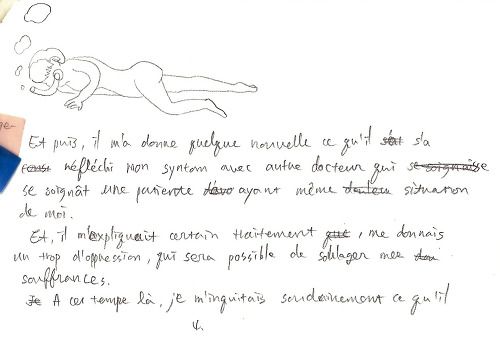 Et puis, il m'a donne quelque nouvelle ce qu'il s'a
réfléchi mon syntom avec autre docteur qui
se soignât une patiente ayant même situation
de moi.
Et, il m'expliquait certain traitement, me donnais
un trop d'oppression, qui sera possible de solager mee
souffrances.
A ces tempe là, je m'inquitais soudainement ce qu'il